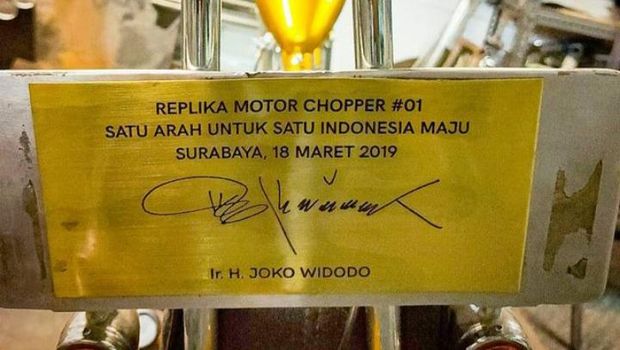 REPLIKA MOTOR CHOPPER #01
SATU ARAH UNTUK SATU INDONESIA MAJU
SURABAYA, 18 MARET 2019
Ir. H. JOKO WIDODO